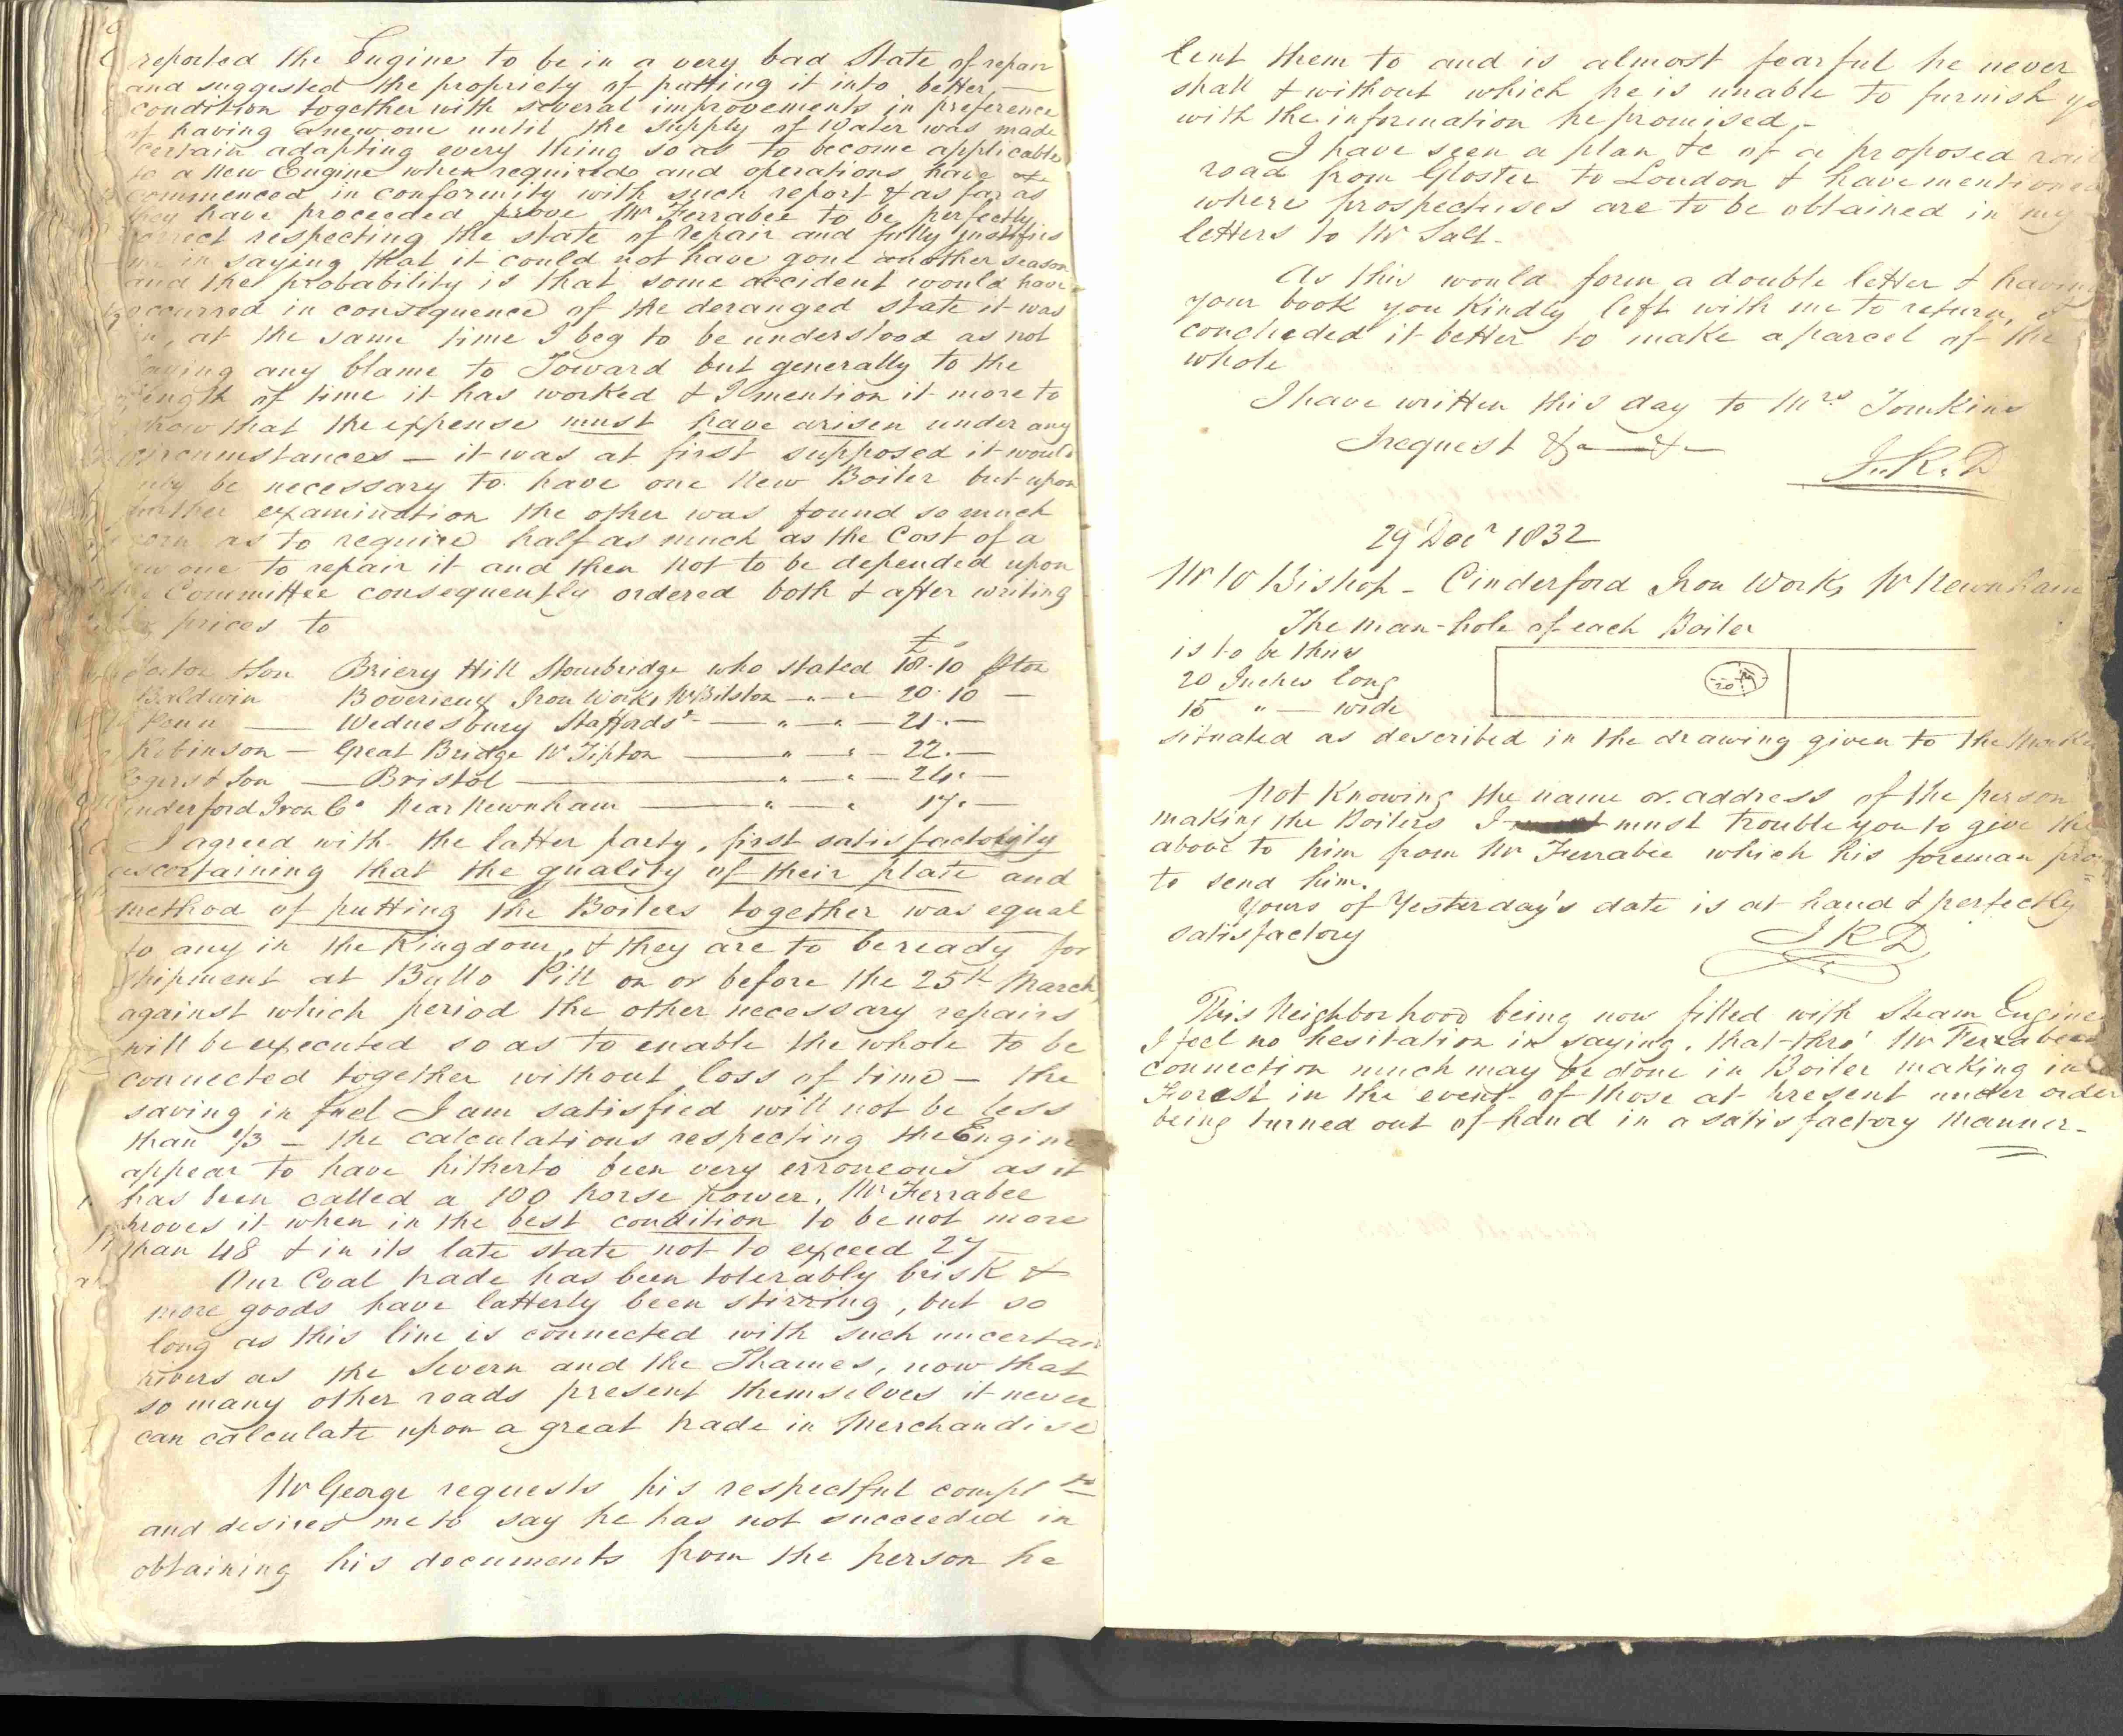 reported the Engine to be in a very bad State of repair
and suggested the propriety of putting it into better
condition together with several improvements in preference
of having a new one until the supply of Water was made
certain adapting every thing so as to become applicable
to a New Engine when required and operations have
commenced in conformity with such report & as far as
they have proceeded prove Mr Ferrabee to be perfectly
correct respecting the state of repair and fully justifies
me in saying that it could not have gone another season
and the probability is that some accident would have
occurred in consequence of the deranged state it was
in, at the same time I beg to be understood as not
laying any blame to Toward but generally to the
length of time it has worked & I mention it more to
show that the expense must have arisen under any
circumstances — it was at first supposed it would
only be necessary to have one New Boiler but upon
further examination the other was found so much
worn as to require half as much as the Cost of a
new one to repair it and then not to be depended upon
the Committee consequently ordered both & after writing
for prices to
£
& Son Briery Hill Stourbridge who stated 18.10 pton
Baldwin Iron Works Nr Bilston — " — 20.10 —
Penn — Wednesbury Staffords — " — 21. —
Robinson — Great Bridge Nr Tipton — " — 22. —
& Son — Bristol — " — 24. —
Cinderford Iron Co Near Newnham — " — 17. —
I agreed with the latter party, first satisfactorily
ascertaining that the quality of their plate and
method of putting the Boilers together was equal
to any in the Kingdom, & they are to be ready for
shipment at Bullo Pill on or before the 25th March
against which period the other necessary repairs
will be executed so as to enable the whole to be
connected together without loss of time — the
saving in fuel I am satisfied will not be less
than 1/3 — the calculations respecting the Engine
appear to have hitherto been very erroneous as it
has been called a 100 horse power, Mr Ferrabee
proves it when in the best condition to be not more
than 48 & in its late state not to exceed 27 —
Our Coal trade has been tolerably brisk &
more goods have latterly been stirring, but so
long as this line is connected with such uncertain
rivers as the Severn and the Thames, now that
so many other roads present themselves it never
can calculate upon a great trade in Merchandise
Mr George requests his respectful complts
and desires me to say he has not succeeded in
obtaining his documents from the person he
lent them to and is almost fearful he never
shall & without which he is unable to furnish yo
with the information he promised —
I have seen a plan &c of a proposed rail
road from Gloster to London & have mentioned
where prospectuses are to be obtained in my
letters to Mr Salt —
As this would form a double letter & having
your book you Kindly left with me to return, I
concluded it better to make a parcel of the
whole
I have written this day to Mrs Tomkins
I request &c — & —
J. K. D
29 Decr 1832
Mr W Bishop — Cinderford Iron Works Nr Newnham
The man-hole of each Boiler
is to be thus
20 Inches long
15 " — wide
20
15
situated as described in the drawing given to the Maker
Not Knowing the name or address of the person
making the Boilers I must trouble you to give the
above to him from Mr Ferrabee which his foreman pro
to send him.
Yours of Yesterday's date is at hand & perfectly
satisfactory
J K D
This Neighborhood being now filled with Steam Engines
I feel no hesitation in saying, that thro' Mr Ferrabees
connection much may be done in Boiler making in
Forest in the event of those at present under order
being turned out of hand in a satisfactory manner —